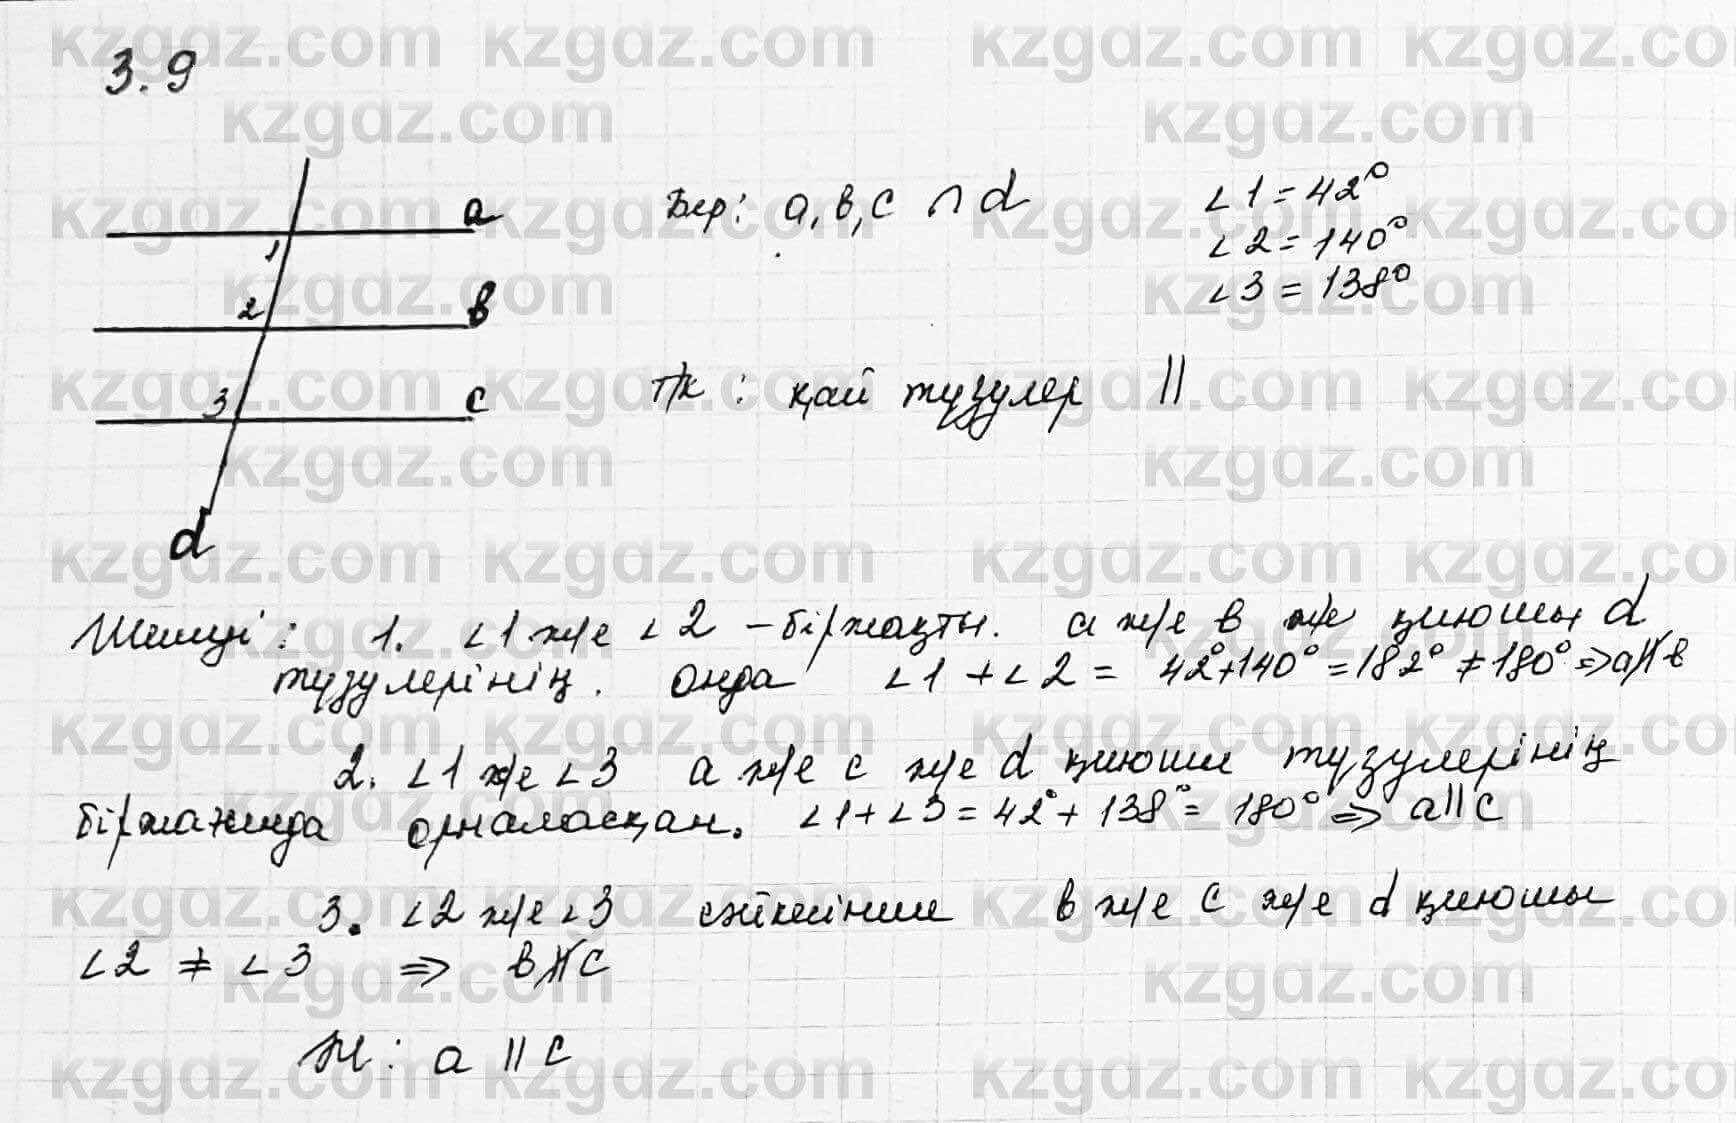 3.9
a
1
2
b
3
c
d
Бер: a, b, c ∩ d
∠1 = 42°
∠2 = 140°
∠3 = 138°
Т/к : қай түзулер ||
Шешуі: 1. ∠1 ж/е ∠2 – біржақты. a ж/е b ж/е қиюшы d
түзулерінің. онда ∠1 + ∠2 = 42° + 140° = 182° ≠ 180° ⇒ a ∦ b
2. ∠1 ж/е ∠3 a ж/е c ж/е d қиюшы түзулерінің
біржағында орналасқан. ∠1 + ∠3 = 42° + 138° = 180° ⇒ a || c
3. ∠2 ж/е ∠3 сәйкесінше b ж/е c ж/е d қиюшы
∠2 ≠ ∠3 ⇒ b ∦ c
Ж: a || c
kzgdz.com